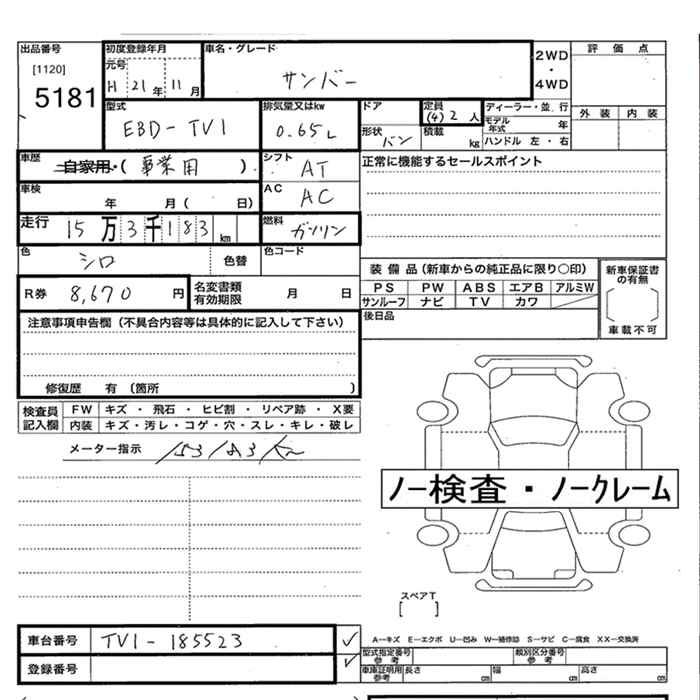 出品番号
[1120]
5181
初度登録年月
元号
H 21年 11月
車名・グレード
サンバー
2WD
・
4WD
評価点
外装 内装
型式
EBD-TV1
排気量又はkw
0.65L
ドア
形状 バン
定員
(4) 2 人
積載
kg
ディーラー・並.行
モデル年式 年
ハンドル 左・右
車歴
自家用・(事業用)
シフト
AT
正常に機能するセールスポイント
車検
年 月( 日)
AC
AC
走行
15万3千183km
燃料
ガソリン
色
シロ
色替
色コード
R券 8,670円
名変書類
有効期限 月 日
装備品(新車からの純正品に限り○印)
PS PW ABS エアB アルミW
サンルーフ ナビ TV カワ
新車保証書
の有無
車載不可
後日品
注意事項申告欄(不具合内容等は具体的に記入して下さい)
修復歴 有(箇所 )
検査員
記入欄
FW キズ・飛石・ヒビ割・リペア跡・X要
内装 キズ・汚レ・コゲ・穴・スレ・キレ・破レ
メーター指示 153183km
ノー検査・ノークレーム
スペアT
[ ]
車台番号 TV1-185523 ✓
登録番号 ✓
A―キズ E―エクボ U―凹み W―補修跡 S―サビ C―腐食 XX―交換済
型式指定番号
参考
類別区分番号
参考
車庫証明用
参考
長さ cm 幅 cm 高さ cm